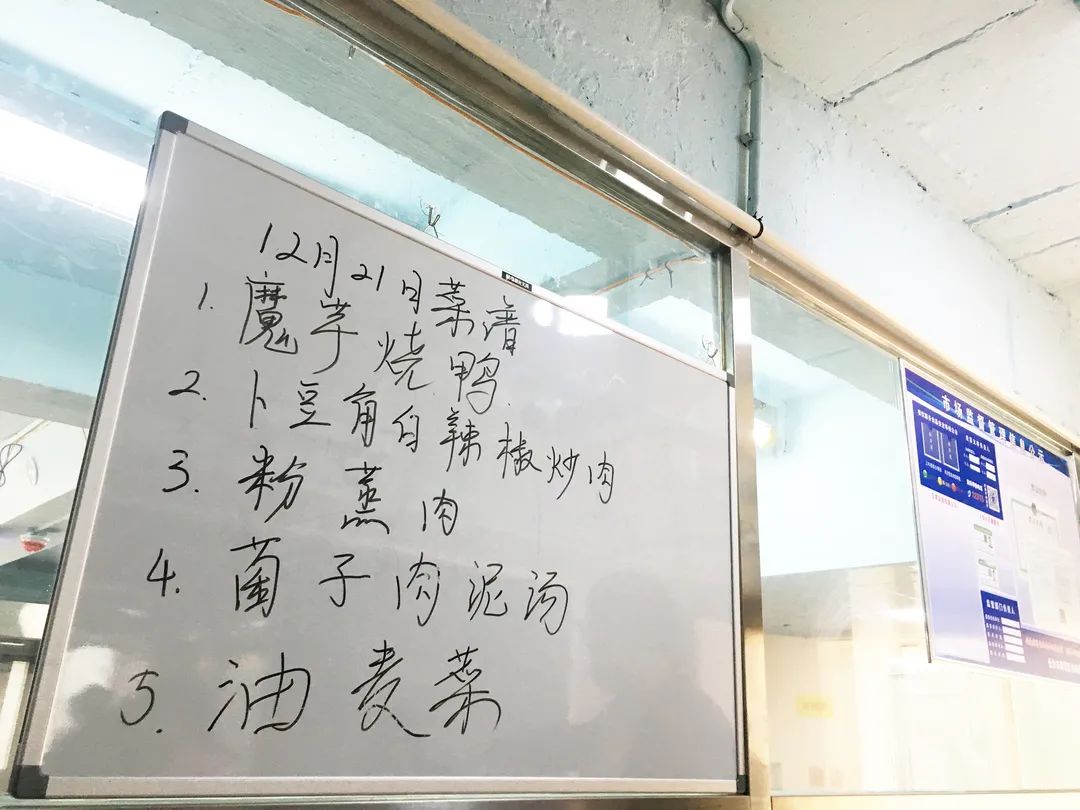 12月21日菜谱
1. 魔芋烧鸭
2. 卜豆角白辣椒炒肉
3. 粉蒸肉
4. 菌子肉泥汤
5. 油麦菜
市场监督管理信息公示